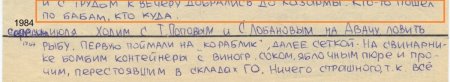 И С ТРУДОМ К ВЕЧЕРУ ДОБРАЛИСЬ ДО КАЗАРМЫ. КТО-ТО ПОШЕЛ
ПО БАБАМ, КТО КУДА.
1984
июля. ХОДИМ С Т. ПОПОВЫМ И С ЛОБАНОВЫМ НА АВАЧУ ЛОВИТЬ
РЫБУ. ПЕРВУЮ ПОЙМАЛИ НА „КОРАБЛИК", ДАЛЕЕ СЕТКОЙ. НА СВИНАРНИ-
КЕ БОМБИМ КОНТЕЙНЕРЫ С ВИНОГР. СОКОМ, ЯБЛОЧНЫМ ПЮРЕ И ПРО-
ЧИМ, ПЕРЕСТОЯВШИМ В СКЛАДАХ ГО. НИЧЕГО СТРАШНОГО, Т.К. ВСЁ